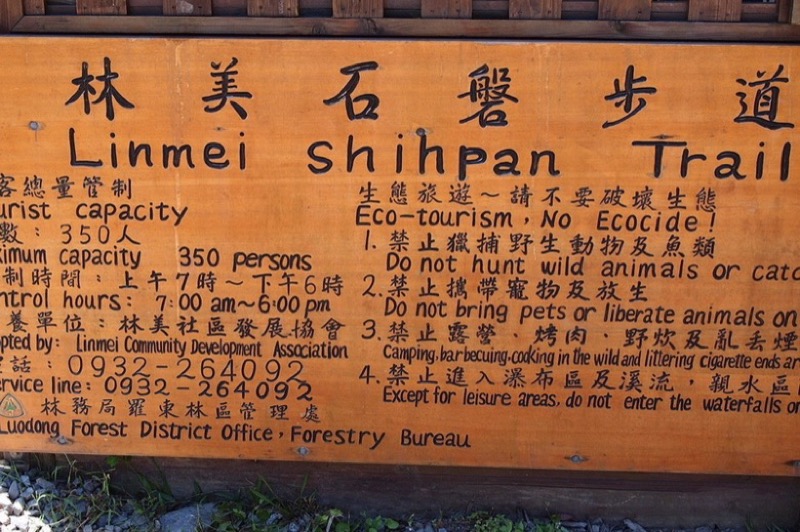 林美石磐步道
Linmei shihpan Trail
客總量管制
urist capacity
數：350人
imum capacity 350 persons
制時間：上午7時～下午6時
ntrol hours: 7:00 am~6:00 pm
養單位：林美社區發展協會
opted by: Linmei Community Development Association
電話：0932-264092
ervice line: 0932-264092
林務局羅東林區管理處
Luodong Forest District Office, Forestry Bureau
生態旅遊～請不要破壞生態
Eco-tourism, No Ecocide!
1. 禁止獵捕野生動物及魚類
Do not hunt wild animals or catc
2. 禁止攜帶寵物及放生
Do not bring pets or liberate animals on
3. 禁止露營、烤肉、野炊及亂丟煙
Camping, barbecuing, cooking in the wild and littering cigarette ends ar
4. 禁止進入瀑布區及溪流，親水區
Except for leisure areas, do not enter the waterfalls or